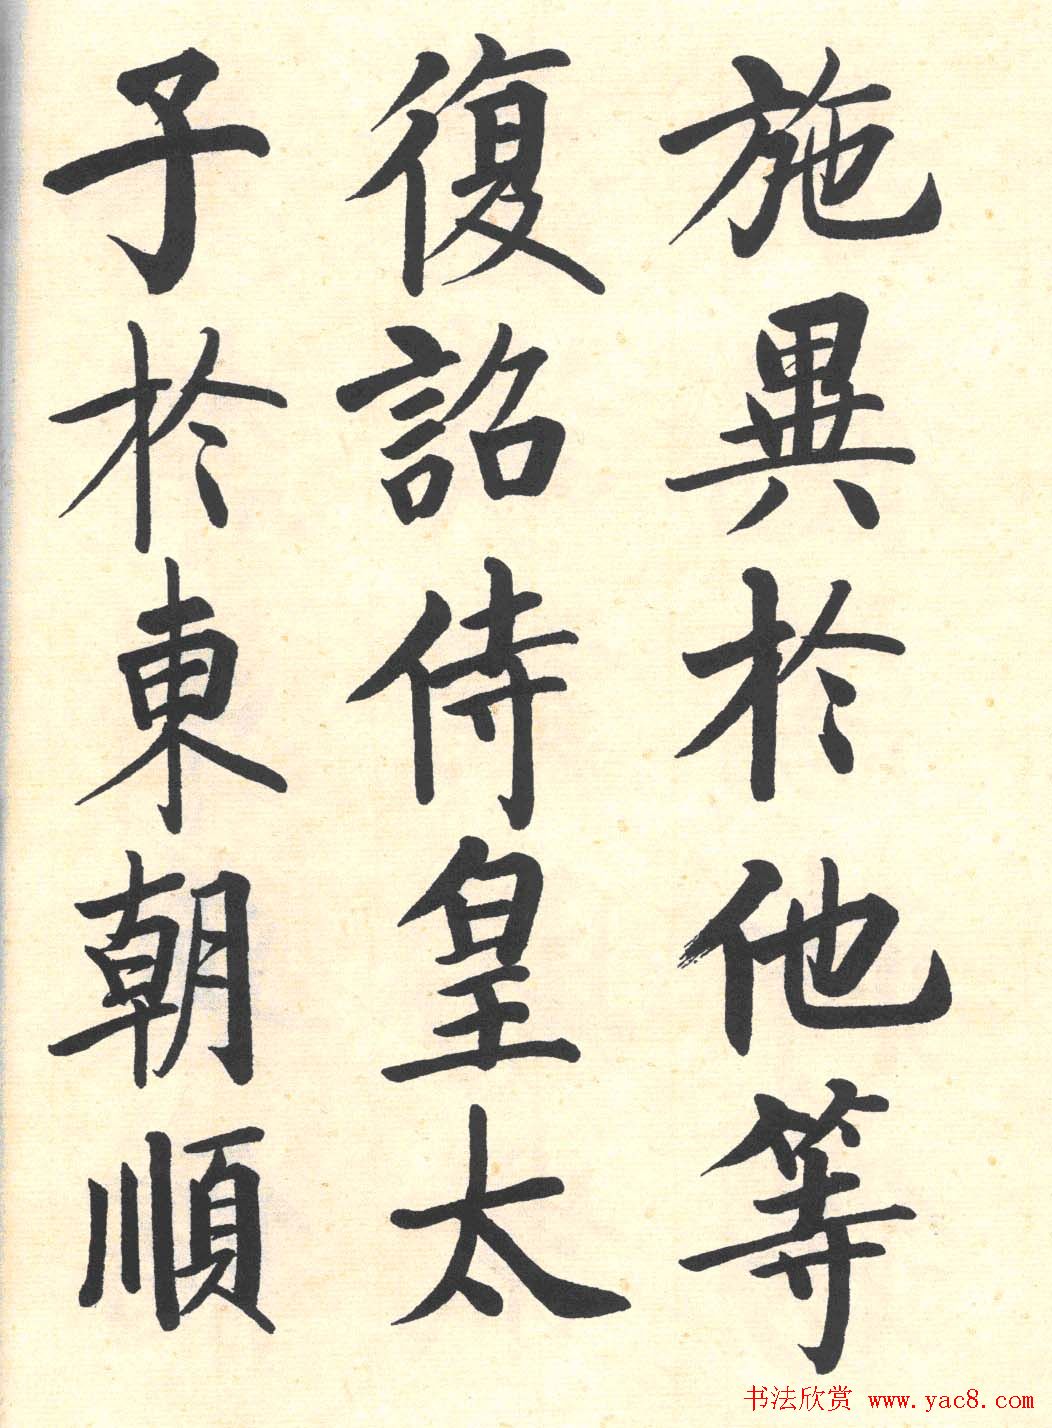 施異於他等
復詔侍皇太
子於東朝順
书法欣赏 www.yac8.com